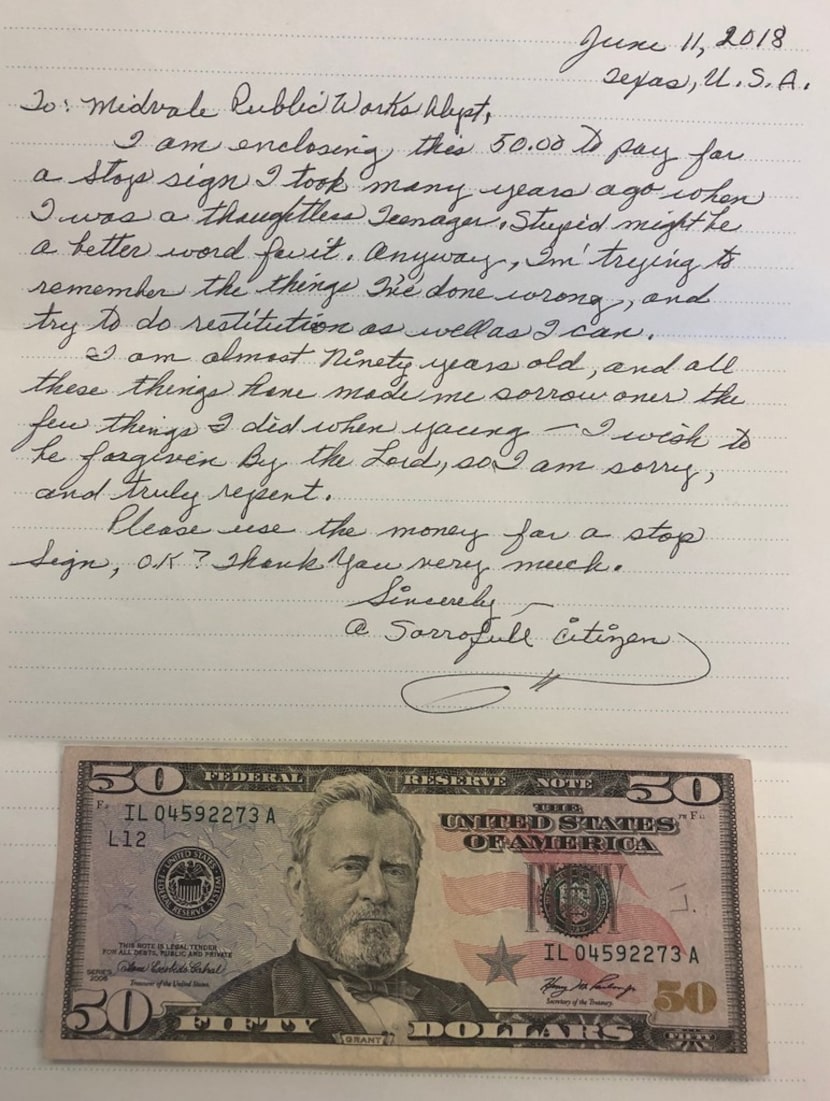 June 11, 2018
Texas, U.S.A.
To: Midvale Public Works Dept,
I am enclosing this 50.00 to pay for
a stop sign I took many years ago when
I was a thoughtless Teenager. Stupid might be
a better word for it. Anyway, I'm trying to
remember the things I've done wrong, and
try to do restitution as well as I can.
I am almost Ninety years old, and all
these things have made me sorrow over the
few things I did when young — I wish to
be forgiven By the Lord, so I am sorry,
and truly repent.
Please use the money for a stop
sign, O.K? Thank You very much.
Sincerely —
a Sorrofull Citizen
50 FEDERAL RESERVE NOTE 50
IL 04592273 A
L12
THE
UNITED STATES
OF AMERICA
UNITED STATES FEDERAL RESERVE SYSTEM
FIFTY
THIS NOTE IS LEGAL TENDER
FOR ALL DEBTS, PUBLIC AND PRIVATE
IL 04592273 A
SERIES
2006
Treasurer of the United States.
Secretary of the Treasury.
50
50 FIFTY DOLLARS
GRANT